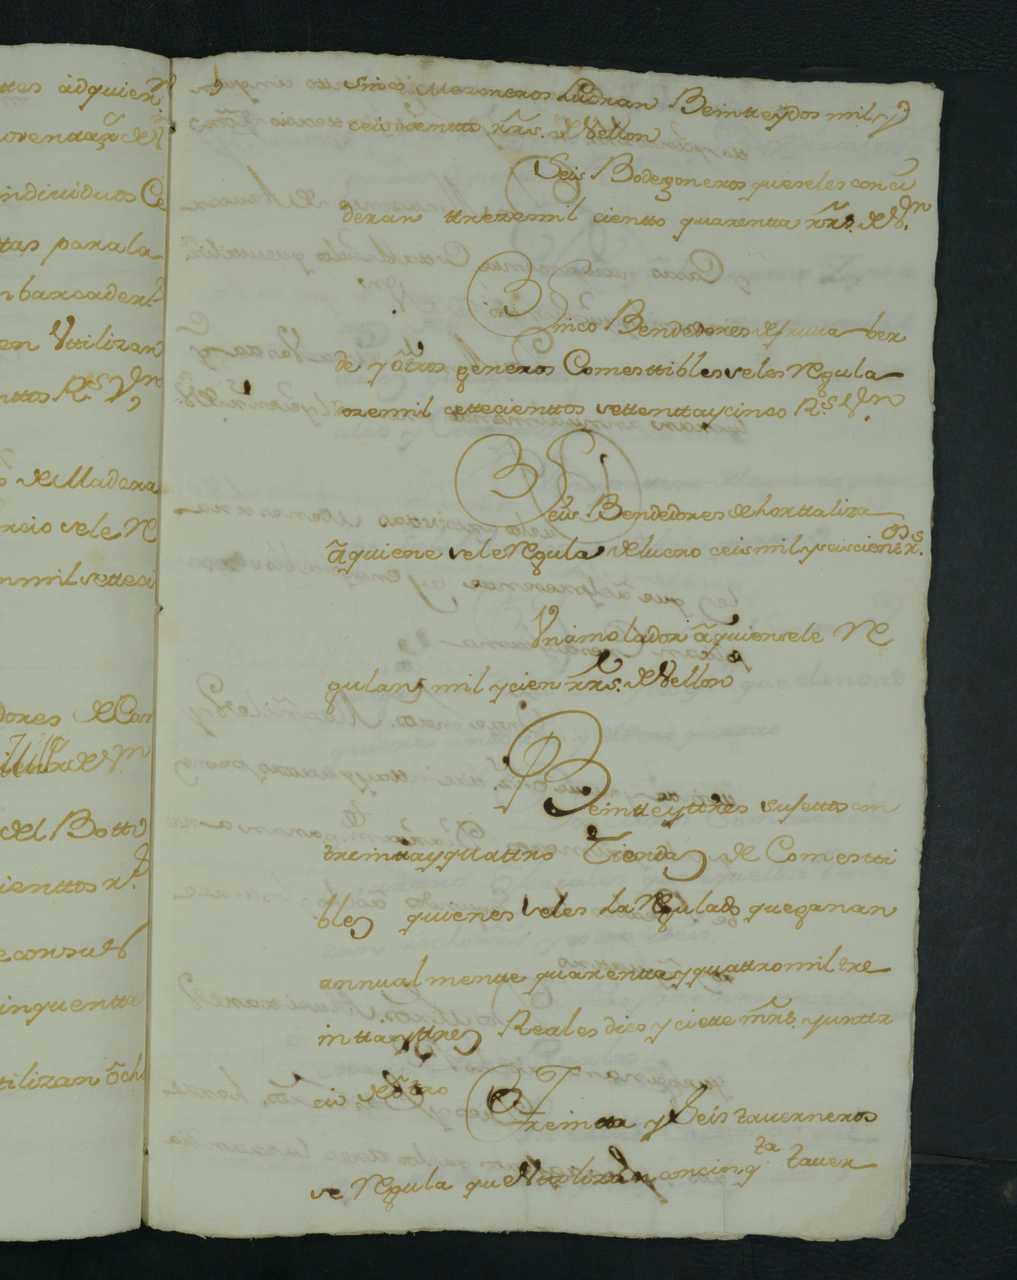 ttas adquien
noventa y de
indiuiduos Ce
ttas para la
n barcader
en Vttilizan
nttos Rs Vn
de Madera
rcio sele Re
n mil setteci
dores de Car
de Vn
del Botti
cienttos rs
e consu
inquentta
tilizan och
Sinco Mezoneros Lucran Beintteydos mil y
ceissientta rrs. de Vellon
Seis Bodegoneros que seles conci
deran ttrexemil cientto quarentta rrs. de Vn.
Sinco Bendedores de frutta ber
de y otros generos Comesttibles seles Regula
onremil settecienttos settenttaycinco Rs Vn
Seis Bendedores de horttaliza
a quiene sele Regula de lucro ceis mil y seiscienttos rs.
Vn amolador a quien sele Re
gulan mil y cien rrs. de Vellon
Beintteyttres susettos con
treinttayquattro Tiendas de Comestti
bles quienes seles ha Regulado que ganan
annualmentte quarenttayquattro mil tre
inttayttres Reales dies y ciette mrs. y un ttr
cio de ottro
Treintta y Seis tauerneros
se Regula que Vttilizan con cionq.ta tauer